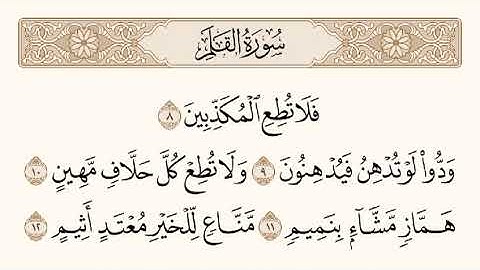 سُورَةُ القَلَمِ
فَلَا تُطِعِ ٱلۡمُكَذِّبِينَ ٨
وَدُّواْ لَوۡ تُدۡهِنُ فَيُدۡهِنُونَ ٩ وَلَا تُطِعۡ كُلَّ حَلَّافٖ مَّهِينٍ ١٠
هَمَّازٖ مَّشَّآءِۭ بِنَمِيمٖ ١١ مَّنَّاعٖ لِّلۡخَيۡرِ مُعۡتَدٍ أَثِيمٍ ١٢